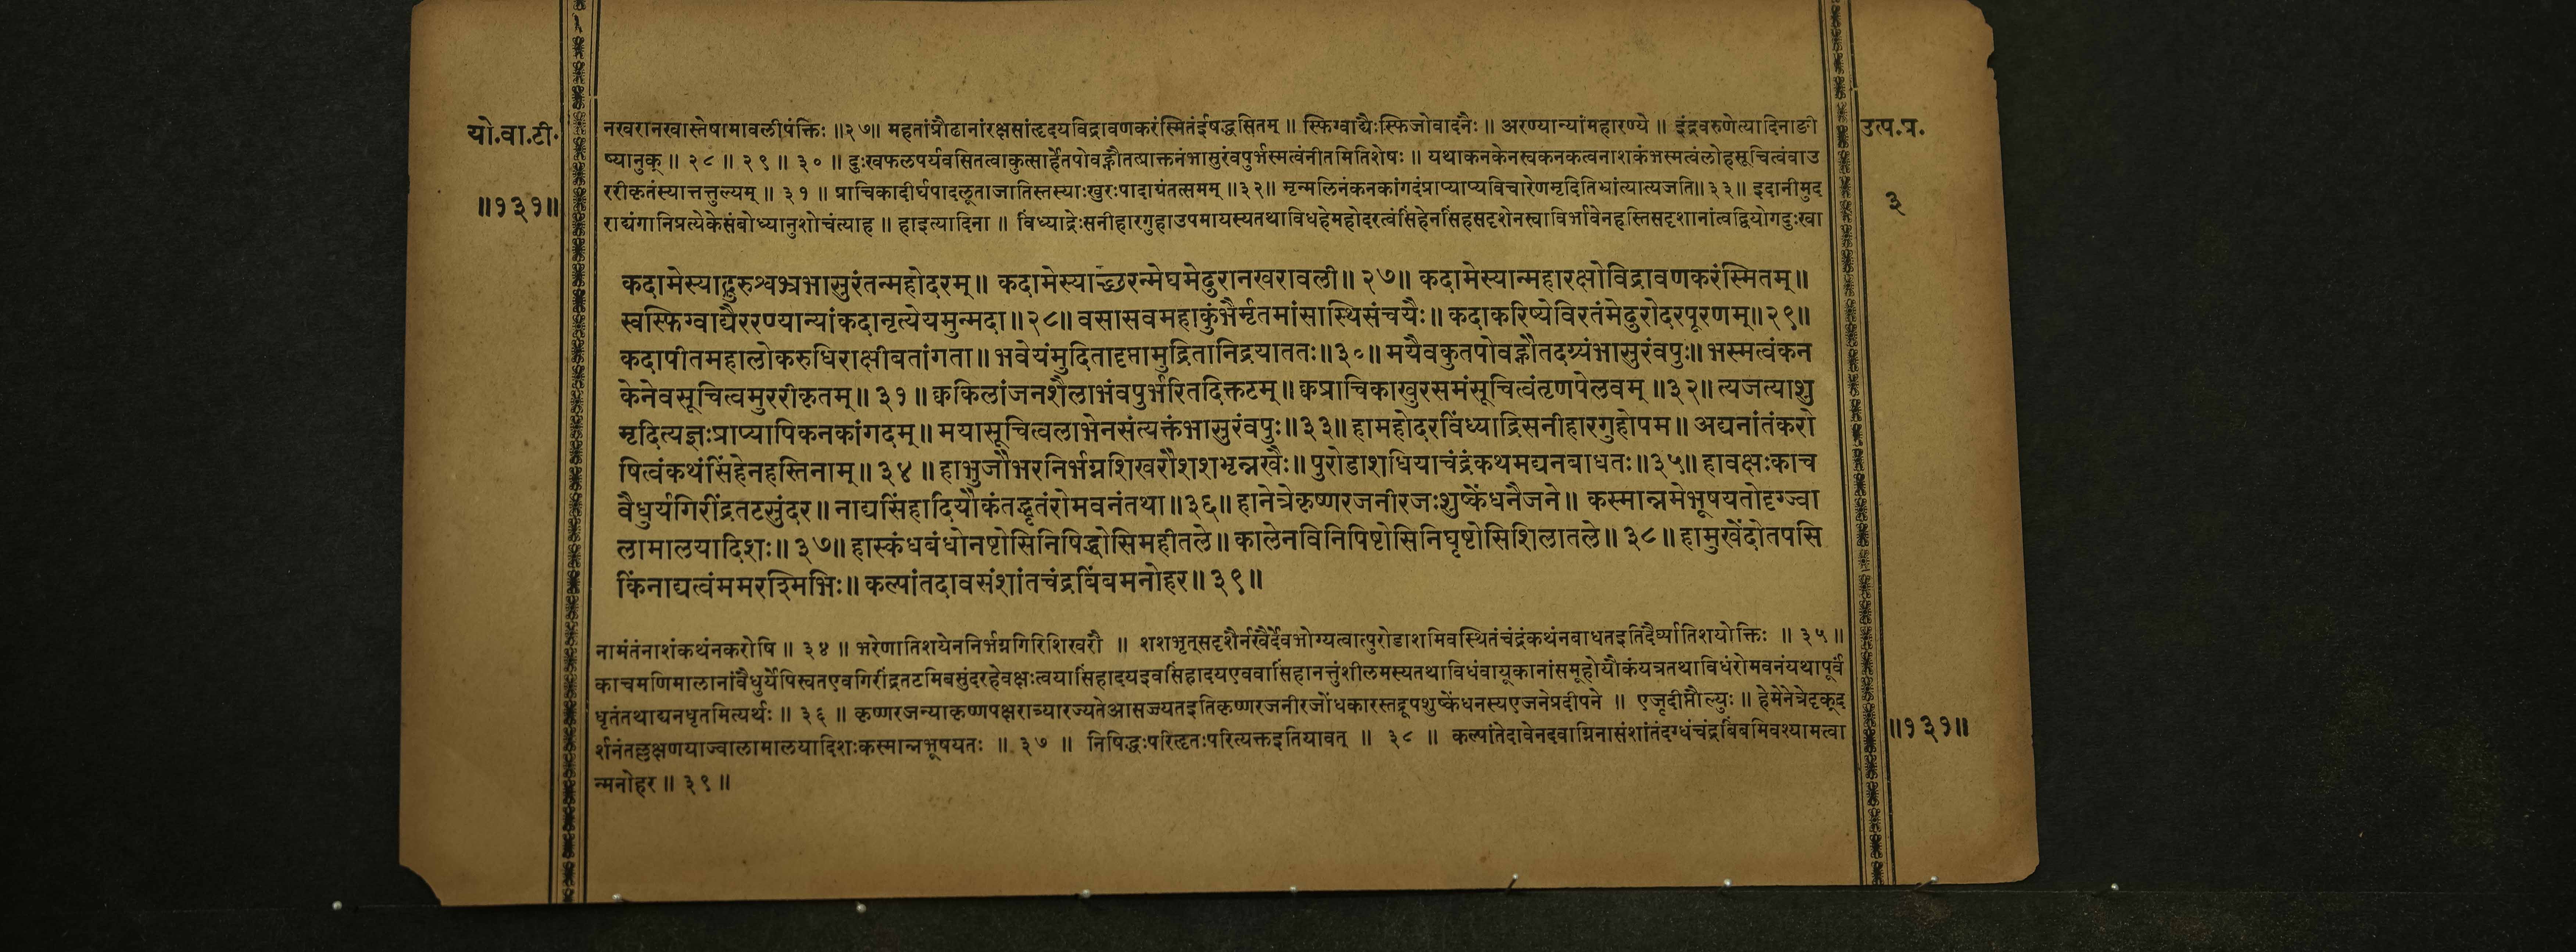 यो.वा.टी.
॥१३१॥
उत्प.प्र.
३
नखरानखास्तेषामावलीपंक्तिः ॥२७॥ महतांप्रौढानांरक्षसांहृदयविद्रावणकरंस्मितंईषद्धसितम् ॥ स्फिग्वाद्यैःस्फिजोवादनैः ॥ अरण्यान्यांमहारण्ये ॥ इंद्रवरुणेत्यादिनाङी
ष्यानुक् ॥ २८ ॥ २९ ॥ ३० ॥ दुःखफलपर्यवसितत्वाकुत्सार्हेतपोवह्नौतत्प्राक्तनंभासुरंवपुर्भस्मत्वंनीतमितिशेषः ॥ यथाकनकेनस्वकनकत्वनाशकंभस्मत्वंलोहसूचित्वंवाउ
ररीकृतंस्यात्तत्तुल्यम् ॥ ३१ ॥ प्राचिकादीर्घपादलूताजातिस्तस्याःखुरःपादायंतत्समम् ॥३२॥ मृन्मलिनंकनकांगदंप्राप्याप्यविचारेणमृदितिभ्रांत्यात्यजति॥३३॥ इदानीमुद
राद्यंगानिप्रत्येकेसंबोध्यानुशोचंत्याह ॥ हाइत्यादिना ॥ विंध्याद्रेःसनीहारगुहाउपमायस्यतथाविधहेमहोदरत्वंसिंहेनसिंहसदृशेनस्वाविर्भावेनहस्तिसदृशानांत्वद्वियोगदुःखा
कदामेस्यादुरुश्वभ्रभासुरंतन्महोदरम्॥ कदामेस्याच्छरन्मेघमेदुरानखरावली॥ २७॥ कदामेस्यान्महारक्षोविद्रावणकरंस्मितम्॥
स्वस्फिग्वाद्यैररण्यान्यांकदानृत्येयमुन्मदा॥२८॥ वसासवमहाकुंभैर्मृतमांसास्थिसंचयैः॥ कदाकरिष्येविरतंमेदुरोदरपूरणम्॥२९॥
कदापीतमहालोकरुधिराक्षीबतांगता॥ भवेयंमुदितादृप्तामुद्रितानिद्रयाततः॥३०॥ मयैवकुतपोवह्नौतदग्र्यंभासुरंवपुः॥ भस्मत्वंकन
केनेवसूचित्वमुररीकृतम्॥ ३१॥ क्वकिलांजनशैलाभंवपुर्भरितदिक्तटम्॥ क्वप्राचिकाखुरसमंसूचित्वंतृणपेलवम् ॥३२॥ त्यजत्याशु
मृदित्यज्ञःप्राप्यापिकनकांगदम्॥ मयासूचित्वलाभेनसंत्यक्तंभासुरंवपुः॥३३॥ हामहोदरविंध्याद्रिसनीहारगुहोपम॥ अद्यनांतंकरो
षित्वंकथंसिंहेनहस्तिनाम्॥ ३४ ॥ हाभुजौभरनिर्भग्नशिखरौशशभृन्नखैः॥ पुरोडाशधियाचंद्रंकथमद्यनबाधतः॥३५॥ हावक्षःकाच
वैधुर्यगिरींद्रतटसुंदर॥ नाद्यसिंहादियौकंतद्धृतंरोमवनंतथा॥३६॥ हानेत्रेकृष्णरजनीरजःशुष्केंधनैजने॥ कस्मान्नमेभूषयतोदृग्ज्वा
लामालयादिशः॥ ३७॥ हास्कंधबंधोनष्टोसिनिषिद्धोसिमहीतले॥ कालेनविनिपिष्टोसिनिघृष्टोसिशिलातले॥ ३८॥ हामुखेंदोतपसि
किंनाद्यत्वंममरश्मिभिः॥ कल्पांतदावसंशांतचंद्रबिंबमनोहर॥ ३९॥
नामंतंनाशंकथंनकरोषि ॥ ३४ ॥ भरेणातिशयेननिर्भग्नगिरिशिखरौ ॥ शशभृत्सदृशैर्नखैर्देवभोग्यत्वात्पुरोडाशमिवस्थितंचंद्रंकथंनबाधतइतिदैर्घ्यातिशयोक्तिः ॥ ३५॥
काचमणिमालानांवैधुर्येपिस्वतएवगिरींद्रतटमिवसुंदरहेवक्षःत्वयासिंहादयइवसिंहादयएववासिंहानत्तुंशीलमस्यतथाविधंवायूकानांसमूहोयौकंयत्रतथाविधंरोमवनंयथापूर्वं
धृतंतथाद्यनधृतमित्यर्थः ॥ ३६ ॥ कृष्णरजन्याकृष्णपक्षरात्र्यारज्यतेआसज्यतइतिकृष्णरजनीरजोंधकारस्तद्रूपशुष्केंधनस्यएजनेप्रदीपने ॥ एजृदीप्तौल्युः ॥ हेमेनेत्रेदृक्द
र्शनंतल्लक्षणयाज्वालामालयादिशःकस्मान्नभूषयतः ॥ ३७ ॥ निषिद्धःपरिहृतःपरित्यक्तइतियावत् ॥ ३८ ॥ कल्पांतेदावेनदवाग्निनासंशांतंदग्धंचंद्रबिंबमिवश्यामत्वा
न्मनोहर ॥ ३९ ॥
॥१३१॥